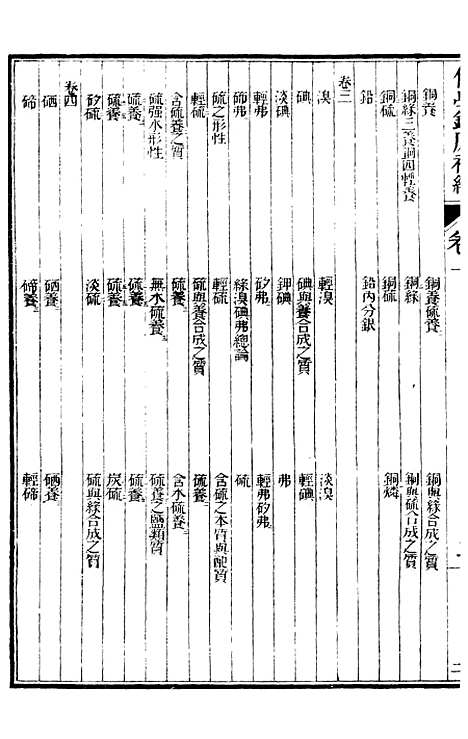 化學鑑原補編 卷一 二
銅養 銅養硫養 銅與綠合成之質
銅綠三銅養四輕養 銅綠 銅與硫合成之質
銅硫 銅硫 銅燐
鉛 鉛內分銀
卷二
溴 輕溴 淡溴
碘 碘與養合成之質 輕碘
淡碘 鉀碘 弗
輕弗 矽弗 輕弗矽弗
砷弗 綠溴碘弗總論 硫
硫之形性 輕硫 含硫之本質與配質
輕硫 硫與養合成之質 硫養
含硫養之質 硫養 含水硫養
硫强水形性 無水硫養 硫養之鹽類質
硫養 硫養 硫養
硫養 硫養 炭硫
矽硫 淡硫 硫與綠合成之質
卷四
硒 硒養 硒養
碲 碲養 輕碲